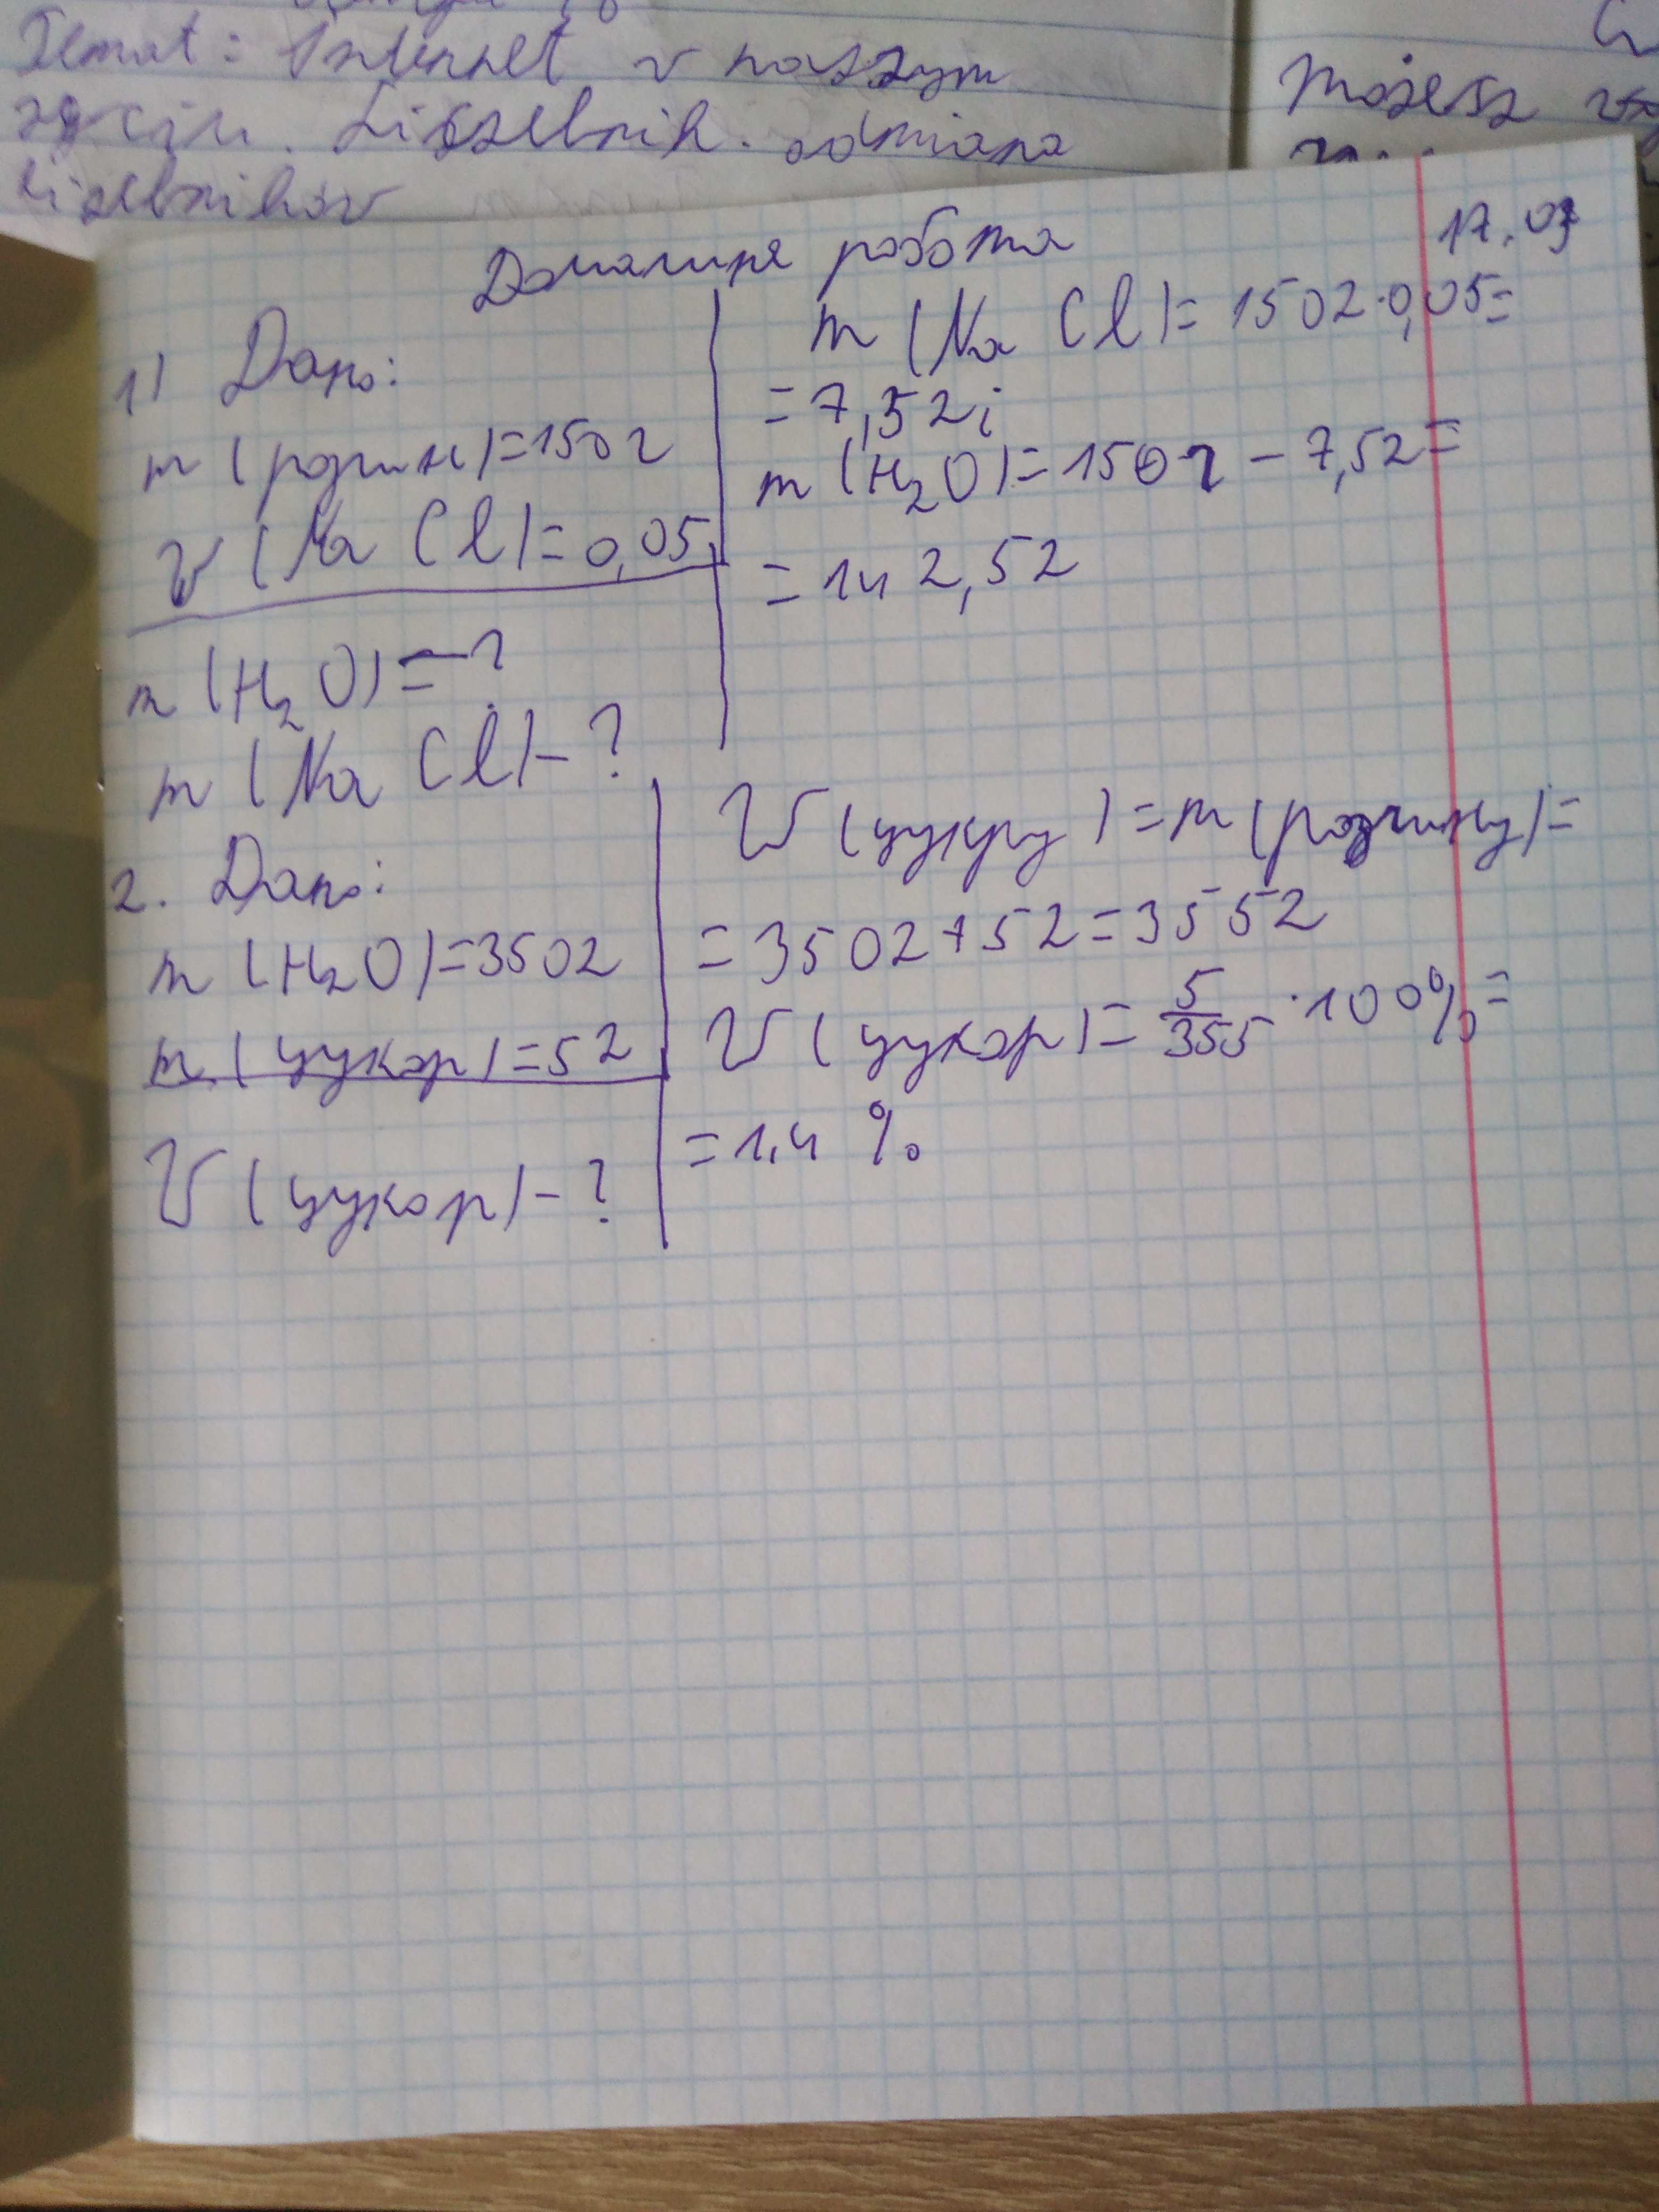 Temat: Internet w naszym
życiu. Liczebnik. odmiana
liczebników
Możesz
Домашня робота
17.03
1) Дано:
m (розчин)=150г
W (Na Cl)=0,05
m (H₂O)=-?
m (Na Cl)-?
m (Na Cl)=150г·0,05=
=7,5г;
m (H₂O)=150г-7,5г=
=142,5г
2. Дано:
m (H₂O)=350г
m (цукор)=5г
W (цукор)-?
W (цукру)=m (розчину)=
=350г+5г=355г
W (цукор)=5/355·100%=
=1,4 %